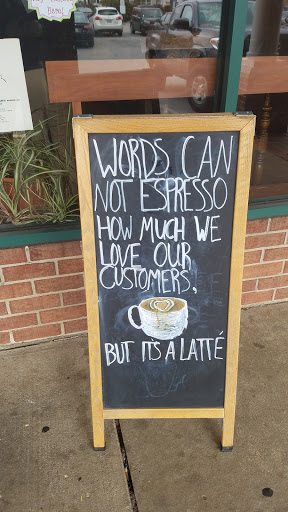 WORDS CAN
NOT ESPRESSO
HOW MUCH WE
LOVE OUR
CUSTOMERS,
BUT IT'S A LATTÉ